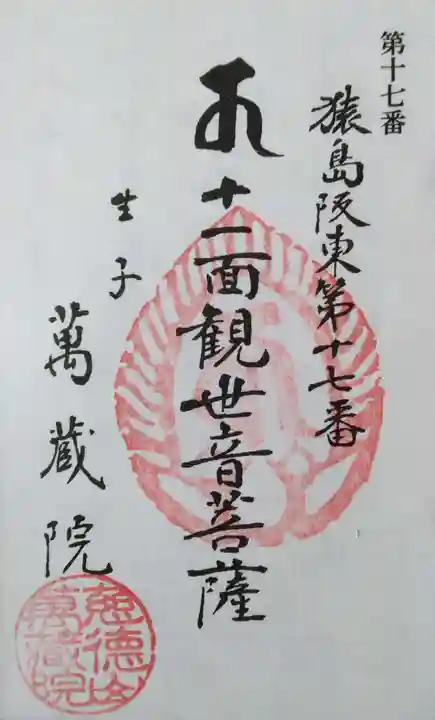 第十七番
猿島阪東第十七番
十一面観世音菩薩
生子
萬蔵院
慈德山
萬蔵院